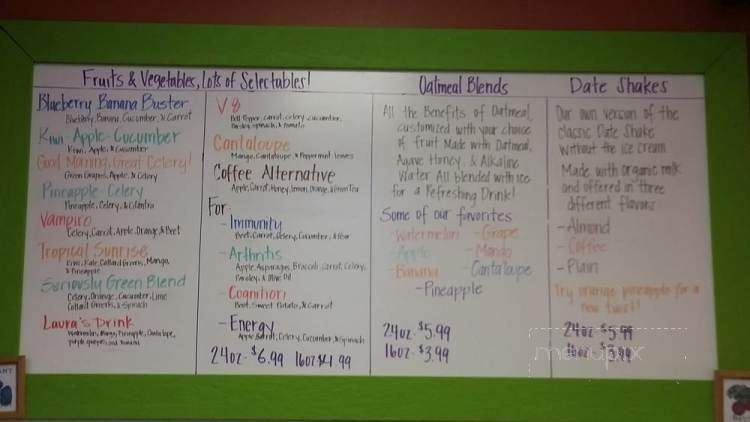 Fruits & Vegetables, Lots of Selectables!
Blueberry Banana Buster
Blueberry, Banana, Cucumber, & Carrot
Kiwi-Apple-Cucumber
Kiwi, Apple, & Cucumber
Good Morning, Great Celery!
Green Grapes, Apple, & Celery
Pineapple-Celery
Pineapple, Celery, & Cilantro
Vampiro
Celery, Carrot, Apple, Orange, & Beet
Tropical Sunrise
Kiwi, Kale, Collard Greens, Mango,
& Pineapple
Seriously Green Blend
Celery, Orange, Cucumber, Lime
Collard Greens, & Spinach
Laura's Drink
Watermelon, Mango, Pineapple, Cantaloupe,
purple grapes, and Banana
V8
Bell Pepper, carrot, celery, cucumber,
Parsley, spinach, & tomato
Cantaloupe
Mango, Cantaloupe, & Peppermint leaves
Coffee Alternative
Apple, Carrot, Honey, lemon, Orange, & Green Tea
For:
- Immunity
Beet, Carrot, Celery, Cucumber, & Pear
- Arthritis
Apple Asparagus, Broccoli carrot, Celery,
Parsley, & Olive Oil
- Cognition
Beet, Sweet Potato, & Carrot
- Energy
Apple, Carrot, Celery, Cucumber, & Spinach
24oz - $6.99 16oz $4.99
Oatmeal Blends
All the Benefits of Oatmeal,
customized with your choice
of fruit. Made with Oatmeal,
Agave Honey, & Alkaline
Water. All blended with ice
for a Refreshing Drink!
Some of our favorites
- Watermelon - Grape
- Apple - Mango
- Banana - Cantaloupe
- Pineapple
24oz - $5.99
16oz - $3.99
Date Shakes
Our own version of the
classic Date Shake
Without the ice cream
Made with organic milk
and offered in three
different flavors
- Almond
- Coffee
- Plain
Try orange pineapple for a
new twist!
24oz - $5.99
16oz - $3.99
menupix